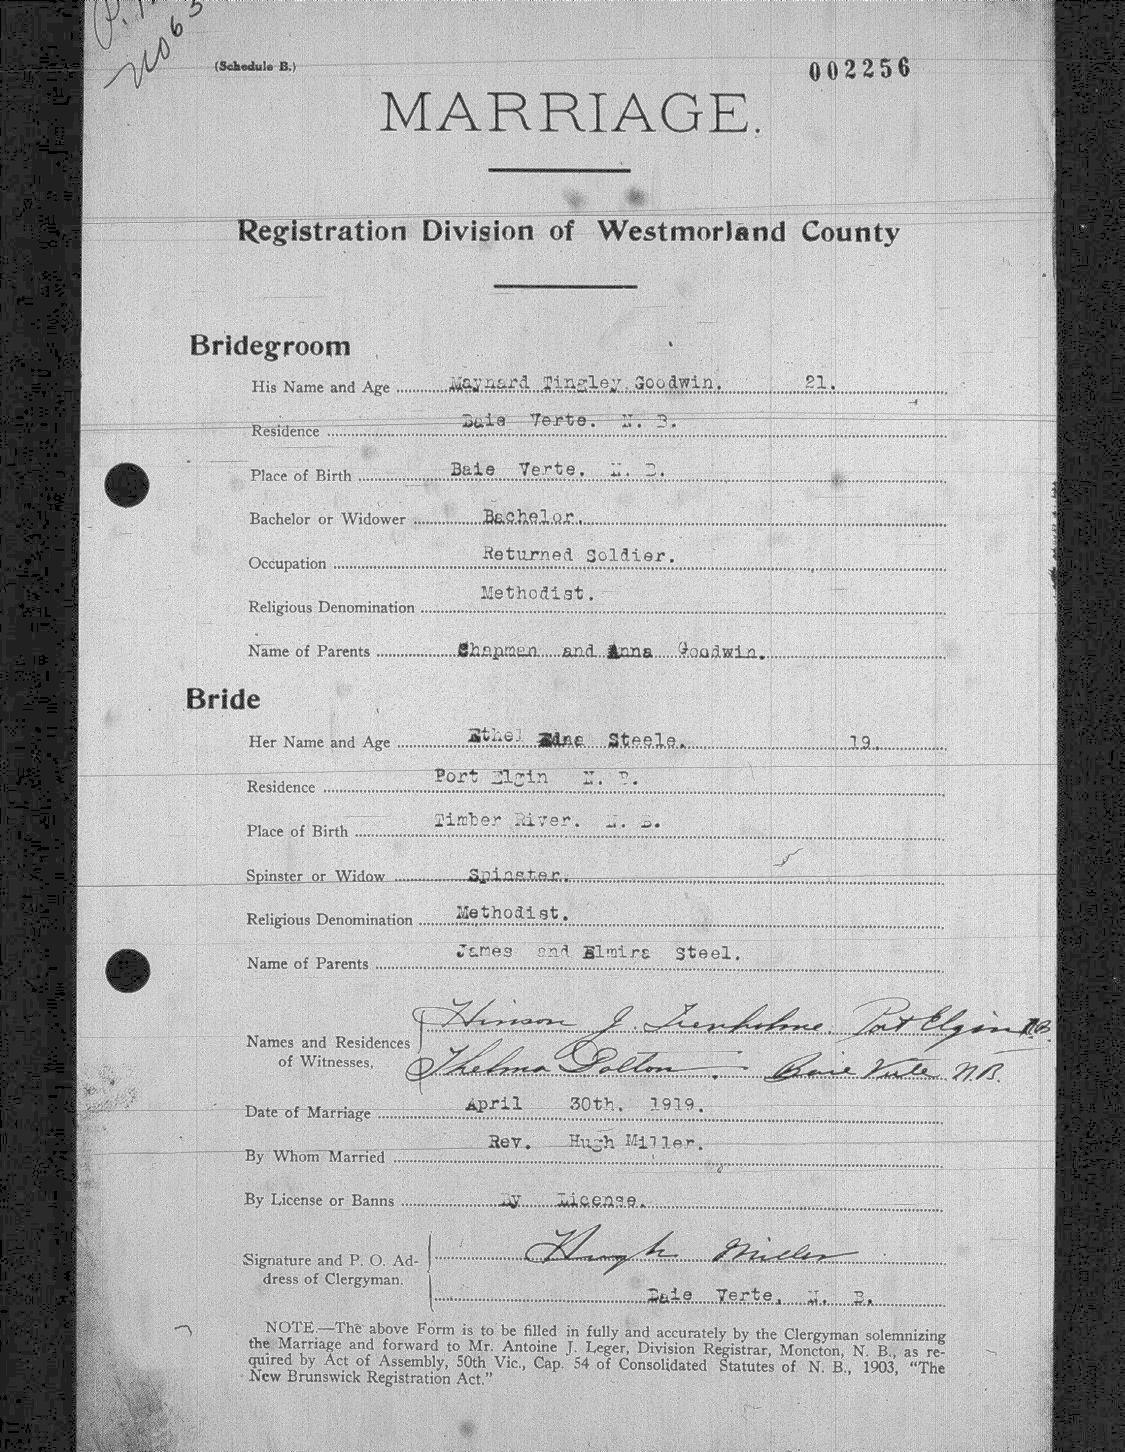 (Schedule B.)
002256
MARRIAGE.
Registration Division of Westmorland County
Bridegroom
His Name and Age Maynard Tingley Goodwin. 21.
Residence Baie Verte. N. B.
Place of Birth Baie Verte. N. B.
Bachelor or Widower Bachelor.
Occupation Returned Soldier.
Religious Denomination Methodist.
Name of Parents Chapman and Anna Goodwin.
Bride
Her Name and Age Ethel Edna Steele. 19.
Residence Port Elgin N. B.
Place of Birth Timber River. N. B.
Spinster or Widow Spinster.
Religious Denomination Methodist.
Name of Parents James and Elmira Steel.
Hinson J. Trenholme. Port Elgin N.B.
Names and Residences
of Witnesses,
Thelma Dolton. Baie Verte N.B.
Date of Marriage April 30th. 1919.
By Whom Married Rev. Hugh Miller.
By License or Banns By License.
Signature and P. O. Ad- Hugh Miller
dress of Clergyman.
Baie Verte, N. B.
NOTE.—The above Form is to be filled in fully and accurately by the Clergyman solemnizing
the Marriage and forward to Mr. Antoine J. Leger, Division Registrar, Moncton, N. B., as re-
quired by Act of Assembly, 50th Vic., Cap. 54 of Consolidated Statutes of N. B., 1903, "The
New Brunswick Registration Act."